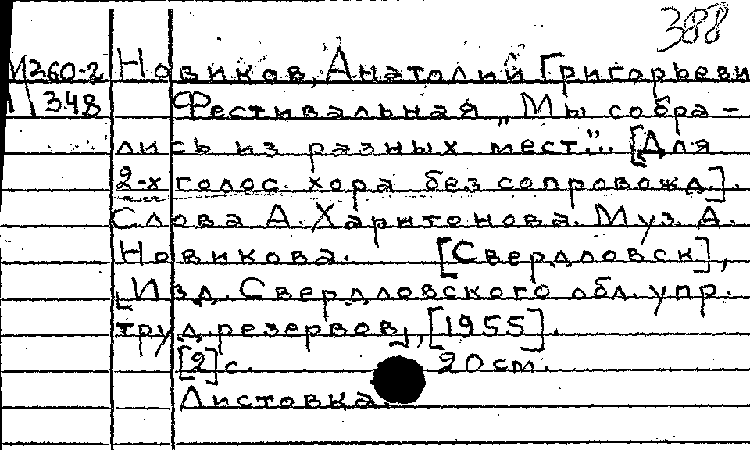 388
М360-2 Новиков, Анатолий Григорьеви
348 Фестивальная „Мы собра-
лись из разных мест...". [Для
2-х голос. хора без сопровожд.].
Слова А. Харитонова. Муз. А.
Новикова. [Свердловск],
[Изд. Свердловского обл. упр.
труд. резервов], [1955].
[2] с. 20 cm.
Листовка.